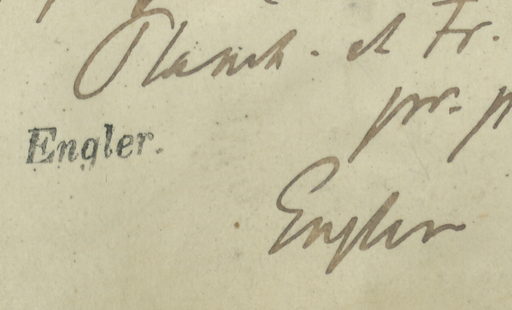 Planch. et Fr.
pr. p
Engler.
Engler